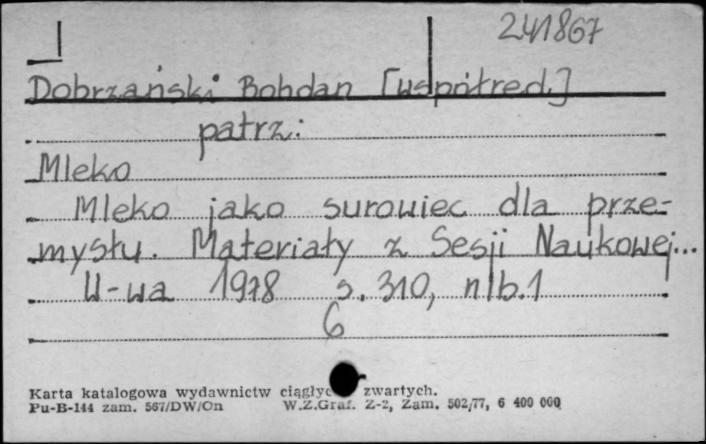 241867
Dobrzański Bohdan [współred.]
patrz:
Mleko
Mleko jako surowiec dla prze-
mysłu. Materiały z Sesji Naukowej...
W-wa 1978 s. 310, nlb. 1
6
Karta katalogowa wydawnictw zwartych.
Pu-B-144 zam. 567/DW/On W.Z.Graf. Z-2, Zam. 502/77, 6 400 000